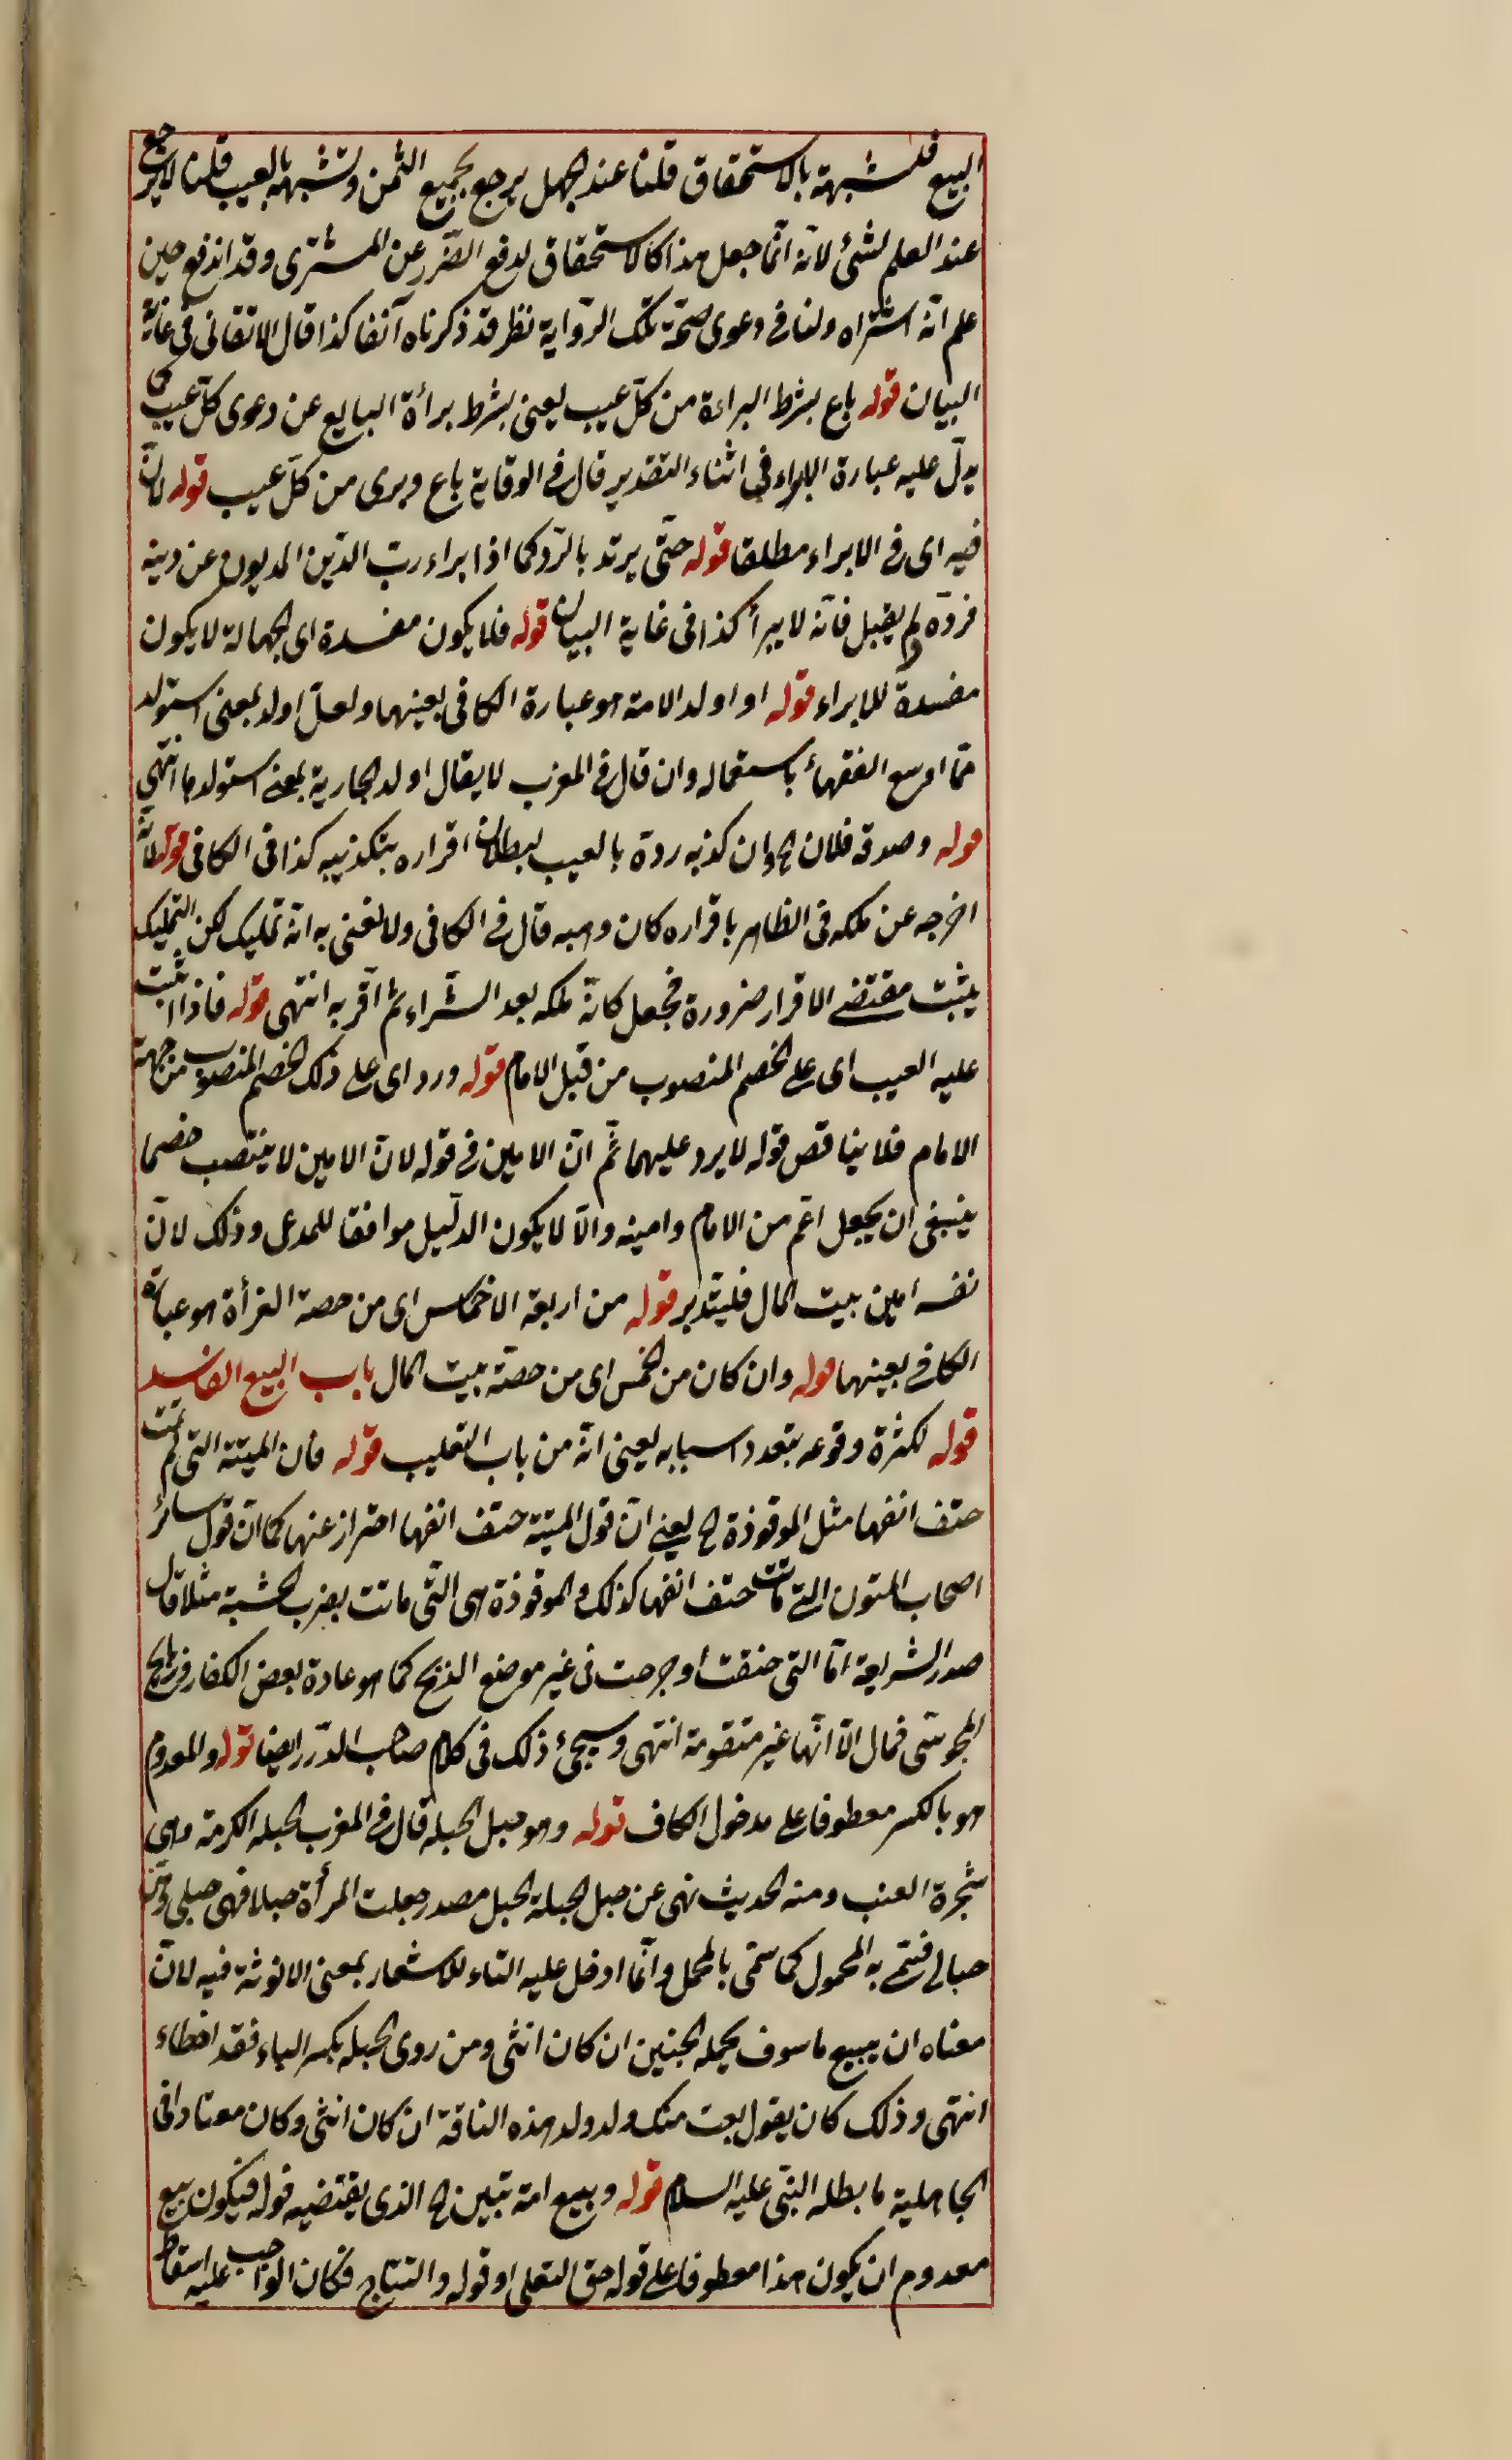 البيع فلشبهة بالاستحقاق قلنا عند الجهل يرجع بجميع الثمن ولشبهة بالعيب قلنا لا يرجع
عند العلم بشئ لانه انما جعل هذا كالاستحقاق لدفع الضرر عن المشترى وقد اندفع حين
علم انه اشتراه ولنا فى دعوى صحة تلك الرواية نظر قد ذكرناه آنفا كذا قال الاتقانى فى غاية
البيان قوله باع بشرط البراءة من كل عيب يعنى بشرط براءة البايع عن دعوى كل عيب كما
يدل عليه عبارة الابراء فى اثناء التقدير قال فى الوقاية باع وبرى من كل عيب قوله لان
فيه اى فى الابراء مطلقا قوله حتى يرتد بالرد كما اذا ابراء رب الدين المديون عن دينه
فرده ولم يقبل فانه لا يبرأ كذا فى غاية البيان قوله فلا يكون مفسدة اى الجهالة لا يكون
مفسدة للابراء قوله او اولد الامة هو عبارة الكافى بعينها ولعل اولد بمعنى استولد
مما اوسع الفقهاء باستعماله وان قال فى المغرب لا يقال اولد الجارية بمعنى استولدها انتهى
قوله وصدقه فلان الخ وان كذبه رده بالعيب لبطلان اقراره بتكذيبه كذا فى الكافى قوله لانه
اخرجه عن ملكه فى الظاهر باقراره كان وهبه قال فى الكافى ولا نعنى به انه تمليك لكن التمليك
يثبت مقتضى الاقرار ضرورة فجعل كانه ملكه بعد الشراء ثم اقر به انتهى قوله فاذا اثبت
عليه العيب اى على الخصم المنصوب من قبل الامام قوله ورد اى على ذلك الخصم المنصوب من جهة
الامام فلا يناقض قوله لا يرد عليهما ثم ان الامين فى قوله لان الامين لا ينتصب خصما
ينبغى ان يجعل اعم من الامام وامينه والا لا يكون الدليل موافقا للمدعى وذلك لان
نفسه امين بيت المال فليتدبر قوله من اربعة الاخماس اى من حصة الغزاة هو عبارة
الكافى بعينها قوله وان كان من الخمس اى من حصة بيت المال باب البيع الفاسد
قوله لكثرة وقوعه بتعدد اسبابه يعنى انه من باب التغليب قوله فان الميتة التى لم تمت
حتف انفها مثل الموقوذة الخ يعنى ان قول الميتة حتف انفها احتراز عنها كما ان قول سائر
اصحاب المتون التى ماتت حتف انفها كذلك والموقوذة هى التى ماتت بضرب الخشبة مثلا قال
صدر الشريعة اما التى خنقت او جرحت فى غير موضع الذبح كما هو عادة بعض الكفار وذبايح
المجوسى فمال الا انها غير متقومة انتهى وسيجئ ذلك فى كلام صاحب الدرر ايضا قوله والمعدوم
هو بالكسر معطوفا على مدخول الكاف قوله وهو حبل الحبله قال فى المغرب الحبله الكرمة وهى
شجرة العنب ومنه الحديث نهى عن حبل الحبلة الحبل مصدر حبلت المرأة حبلا فهى حبلى وهن
حبالى فسمى به المحمول كما سمى بالحمل وانما ادخل عليه التاء للاشعار بمعنى الانوثة فيه لان
معناه ان يبيع ما سوف يحمله الجنين ان كان انثى ومن روى الحبله بكسر الباء فقد اخطاء
انتهى وذلك كان يقول بعت منك ولد ولد هذه الناقة ان كان انثى وكان معتادا فى
الجاهلية فابطله النبى عليه السلام قوله وبيع امة تبين الخ الذى يقتضيه قوله فيكون بيع
معدوم ان يكون هذا معطوفا على قوله حق التعلى او قوله والنتاج فكان الواجب عليه اسقاط